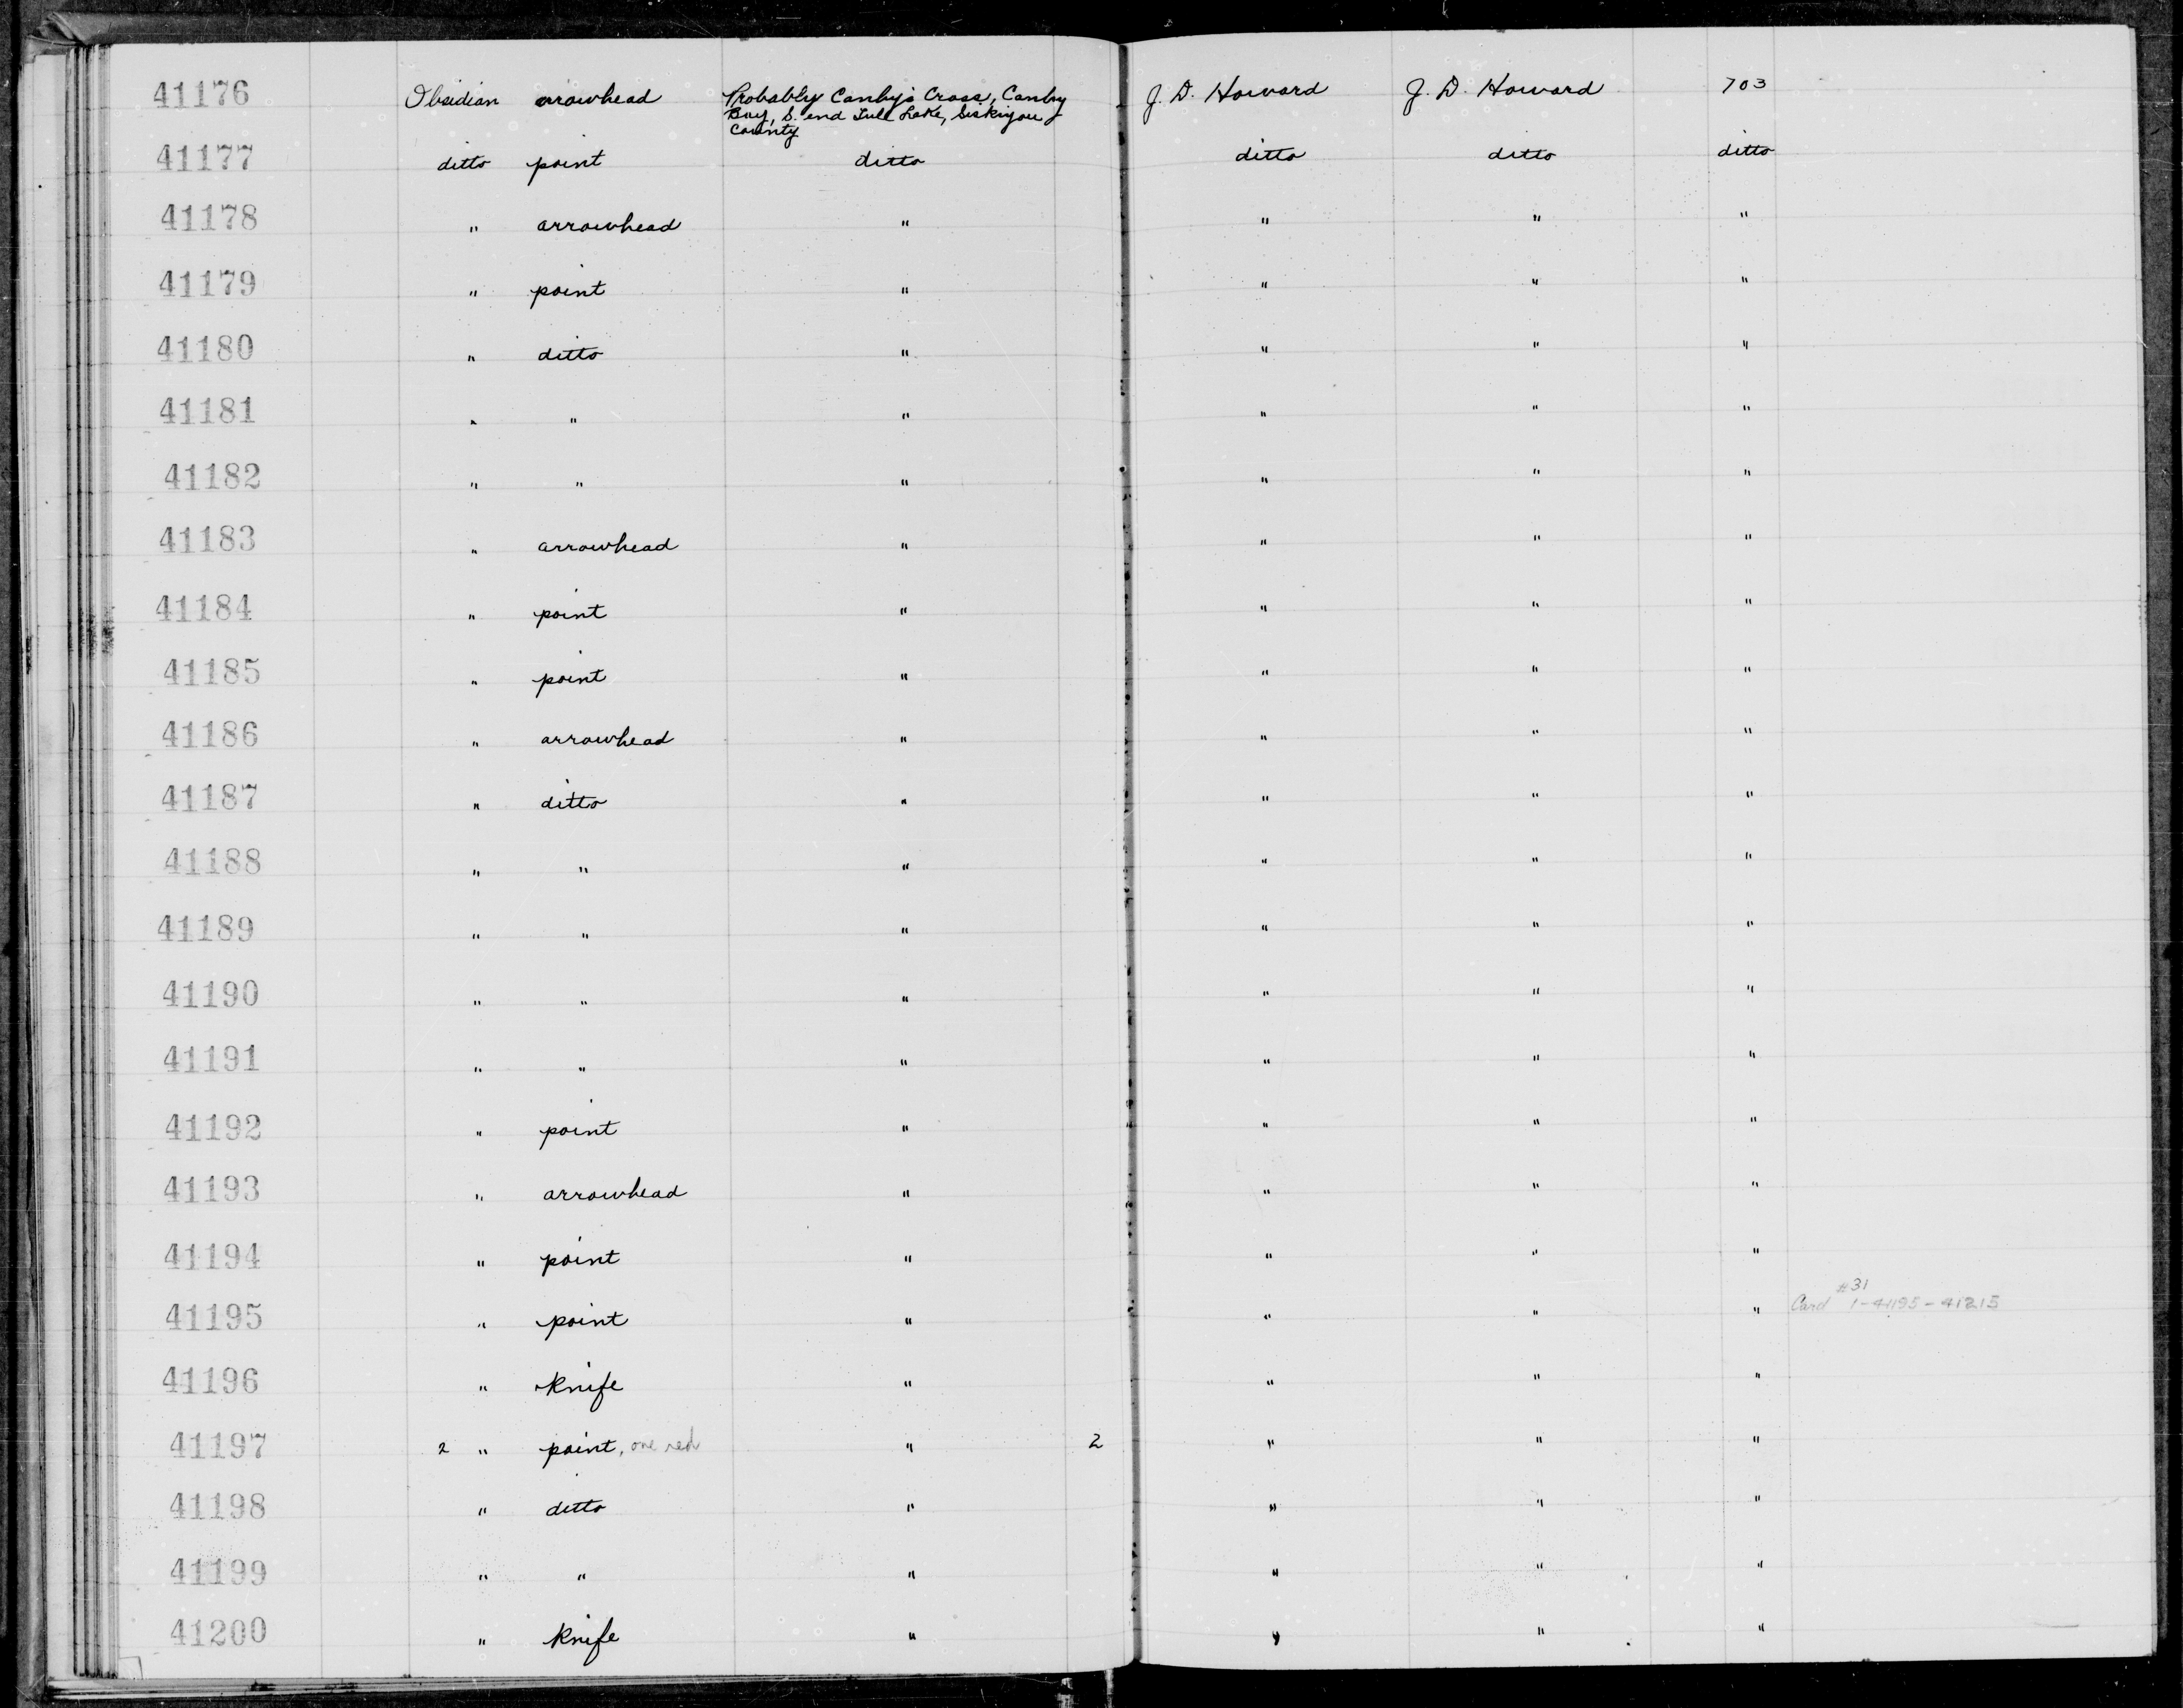 41176 Obsidian arrowhead Probably Canby's Cross, Canby J. D. Howard J. D. Howard 703
Bay, S. end Tule Lake, Siskiyou
County
41177 ditto point ditto ditto ditto ditto
41178 " arrowhead " " " "
41179 " point " " " "
41180 " ditto " " " "
41181 " " " " " "
41182 " " " " " "
41183 " arrowhead " " " "
41184 " point " " " "
41185 " point " " " "
41186 " arrowhead " " " "
41187 " ditto " " " "
41188 " " " " " "
41189 " " " " " "
41190 " " " " " "
41191 " " " " " "
41192 " point " " " "
41193 " arrowhead " " " "
41194 " point " " " "
#31
41195 " point " " " " Card 1-41195-41215
41196 " Knife " " " "
41197 2 " point, one red " 2 " " "
41198 " ditto " " " "
41199 " " " " " "
41200 " Knife " " " "